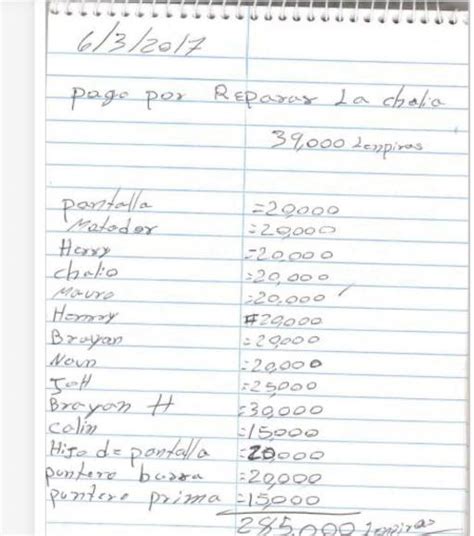 6/3/2017
pago por Reparar La chalia
39,000 Lenpiras
pantalla =20,000
Matador =20,000
Harry =20,000
chalio =20,000
Mauro =20,000
Henrry #20,000
Brayan =20,000
=20,000
=25000
Brayan H =30,000
calin =15,000
Hijo de pantalla =20,000
puntero barra =20,000
puntero prima =15,000
285,000 Lenpiras